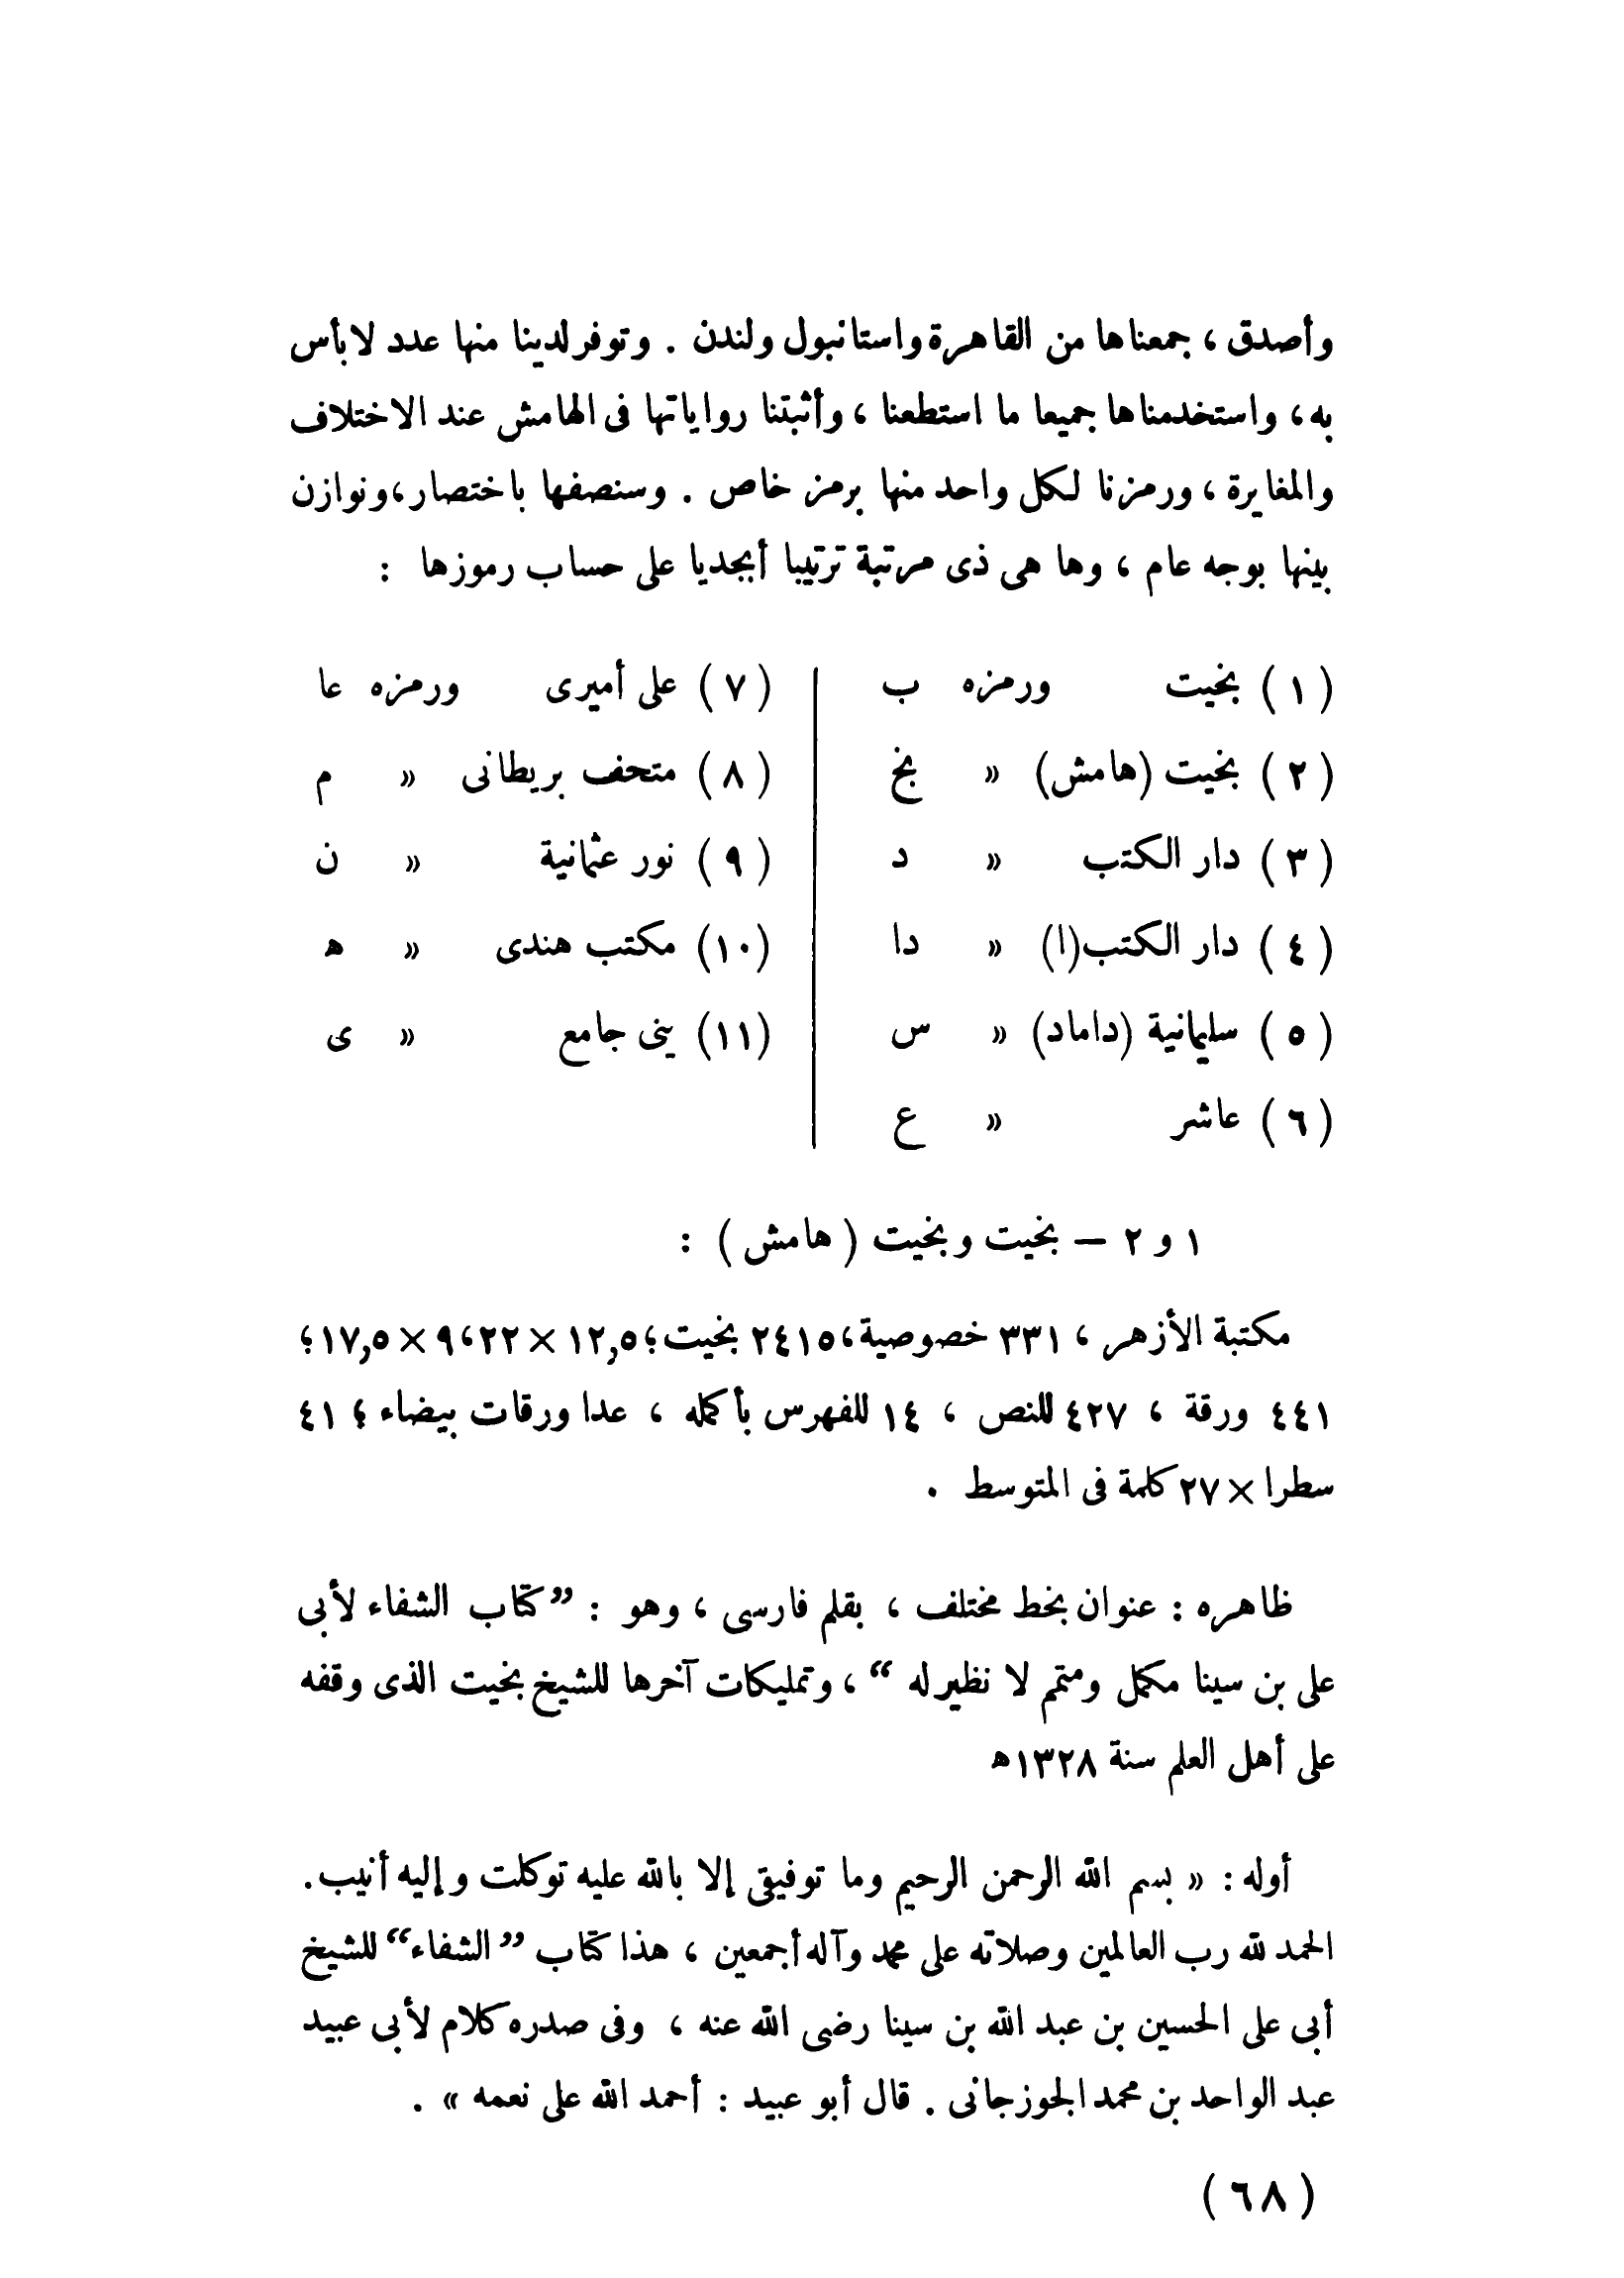 وأصدق ، جمعناها من القاهرة واستانبول ولندن . وتوفر لدينا منها عدد لا بأس
به ، واستخدمناها جميعا ما استطعنا ، وأثبتنا رواياتها فى الهامش عند الاختلاف
والمغايرة ، ورمزنا لكل واحد منها برمز خاص . وسنصفها باختصار، ونوازن
بينها بوجه عام ، وها هى ذى مرتبة ترتيبا أبجديا على حساب رموزها :
( ١ ) بخيت ورمزه ب
( ٢ ) بخيت (هامش) » بخ
( ٣ ) دار الكتب » د
( ٤ ) دار الكتب (ا) » دا
( ٥ ) سليمانية (داماد) » س
( ٦ ) عاشر » ع
( ٧ ) على أميرى ورمزه عا
( ٨ ) متحف بريطانى » م
( ٩ ) نور عثمانية » ن
(١٠) مكتب هندى » ه
(١١) ينى جامع » ى
١ و ٢ — بخيت وبخيت ( هامش ) :
مكتبة الأزهر ، ٣٣١ خصوصية، ٢٤١٥ بخيت؛ ١٢,٥ × ٢٢، ٩ × ١٧,٥؛
٤٤١ ورقة ، ٤٢٧ للنص ، ١٤ للفهرس بأكمله ، عدا ورقات بيضاء ؛ ٤١
سطرا × ٢٧ كلمة فى المتوسط .
ظاهره : عنوان بخط مختلف ، بقلم فارسى ، وهو : ”كتاب الشفاء لأبى
على بن سينا مكمل ومتمم لا نظير له “ ، وتمليكات آخرها للشيخ بخيت الذى وقفه
على أهل العلم سنة ١٣٢٨ه
أوله : « بسم الله الرحمن الرحيم وما توفيقى إلا بالله عليه توكلت وإليه أنيب .
الحمد لله رب العالمين وصلاته على محمد وآله أجمعين ، هذا كتاب ”الشفاء“ للشيخ
أبى على الحسين بن عبد الله بن سينا رضى الله عنه ، وفى صدره كلام لأبى عبيد
عبد الواحد بن محمد الجوزجانى . قال أبو عبيد : أحمد الله على نعمه » .
( ٦٨ )